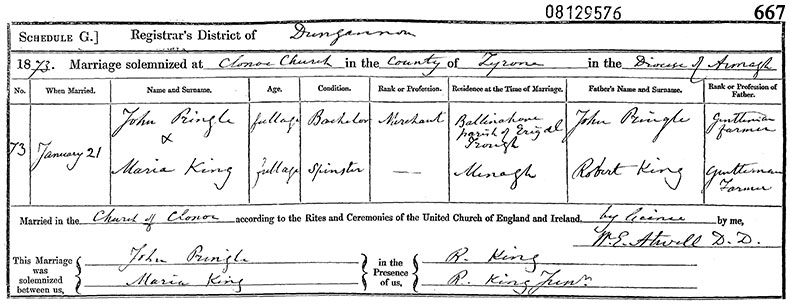 08129576 667
SCHEDULE G.] Registrar's District of Dungannon
1873. Marriage solemnized at Clonoe Church in the County of Tyrone in the Diocese of Armagh
No. When Married. Name and Surname. Age. Condition. Rank or Profession. Residence at the Time of Marriage. Father's Name and Surname. Rank or Profession of Father.
73 January 21
John Pringle full age Bachelor Merchant Ballinahone parish of Errigal Trough John Pringle Gentleman farmer
&
Maria King full age Spinster — Menagh Robert King Gentleman Farmer
Married in the Church of Clonoe according to the Rites and Ceremonies of the United Church of England and Ireland, by licence by me,
W. E. Atwell D. D.
This Marriage was solemnized between us, John Pringle Maria King in the Presence of us, R. King R. King Junr.